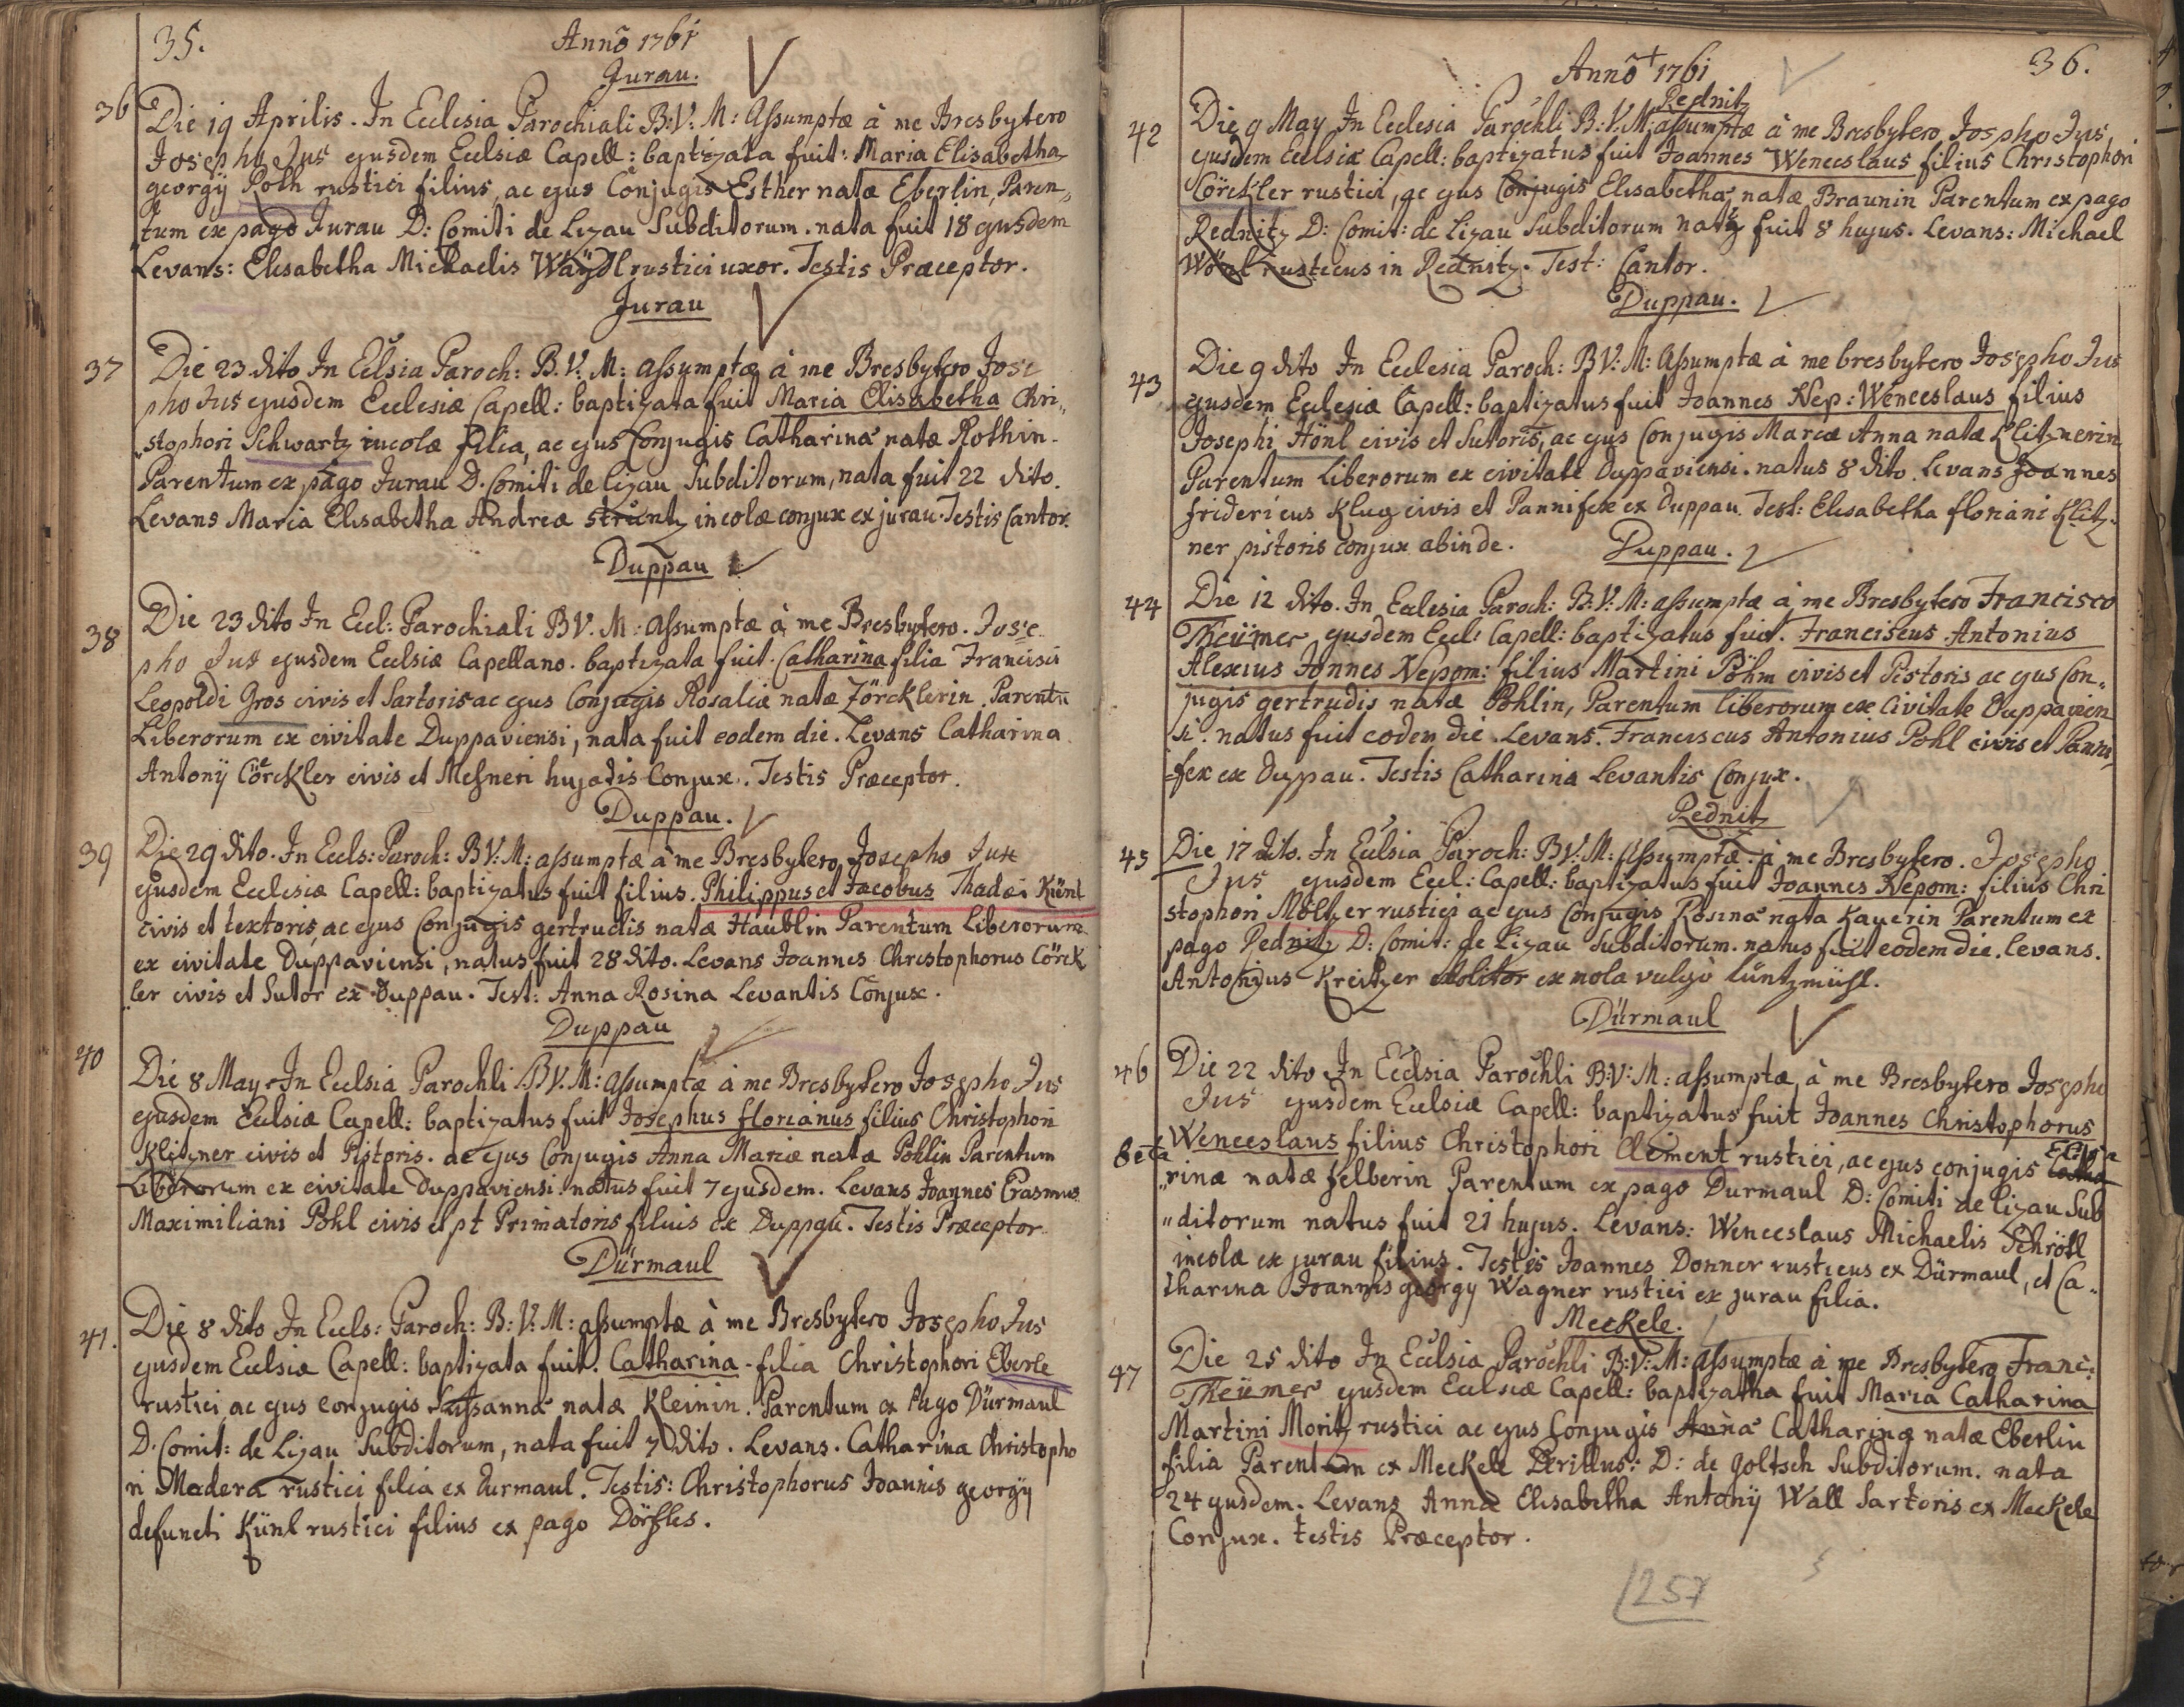 35.
Annō 1761
Jurau.
36
Die 19 Aprilis. In Ecclesia Parochiali B: V: M: Assumptæ à me Bresbytero
Josepho Jus ejusdem Eclsiæ Capell: baptizata fuit: Maria Elisabetha
georgÿ Roth rustici filius, ac ejus Conjugis Esther natæ Eberlin, Paren„
„tum ex pago Jurau D: Comiti de Lizau Subditorum. nata fuit 18 ejusdem
Levans: Elisabetha Michaelis Waÿdl rustici uxor. Testis Præceptor.
Jurau
37
Die 23 dito In Eclsia Paroch: B. V: M: assumptæ à me Bresbytero Jose
pho Jus ejusdem Ecclesiæ Capell: baptizata fuit Maria Elisabetha Chri„
„stophori Schwartz incolæ filia, ac ejus Conjugis Catharina natæ Rothin.
Parentum ex pago Jurau D. Comiti de lizau Subditorum, nata fuit 22 dito.
Levans Maria Elisabetha Andreæ struntz incolæ conjux ex jurau. Testis Cantor.
Duppau
38
Die 23 dito In Eccl: Parochiali B V. M: Assumptæ à me Bresbytero. Jose
pho Jus ejusdem Eclsiæ Capellano. baptizata fuit. Catharina filia Francisci
Leopoldi Gros civis et Sartoris ac ejus Conjugis Rosaliæ natæ Zörcklerin. Parentū
Liberorum ex civitate Duppaviensi, nata fuit eodem die. Levans Catharina
Antonÿ Cörckler civis et Meßneri hujatis Conjux. Testis Præceptor.
Duppau.
39
Die 29 dito. In Eccls: Paroch: B V: M: assumptæ à me Bresbytero, Josepho Jus
ejusdem Ecclesiæ Capell: baptizatus fuit filius. Philippus et Jacobus Thadæi Künl
civis et textoris, ac ejus Conjugis gertrudis natæ Haublin Parentum Liberorum
ex civitate Duppaviensi, natus fuit 28 dito. Levans Joannes Christophorus Cörck
„ler civis et Sutor ex Duppau. Test: Anna Rosina Levantis Conjux.
Duppau
40
Die 8 May In Eclsia Parochli B V. M: assumptæ à me Bresbytero Josepho Jus
ejusdem Eclsiæ Capell: baptizatus fuit Josephus florianus filius Christophori
Klitzner civis et Pistoris. ac ejus Conjugis Anna Mariæ natæ Pohlin Parentum
Liberorum ex civitate Duppaviensi. natus fuit 7 ejusdem. Levans Joannes Erasmus
Maximiliani Pohl civis et pt Primatoris filius ex Duppau. Testis Præceptor.
Dürmaul
41.
Die 8 dito In Eccls: Paroch: B: V: M: assumptæ à me Bresbytero Josepho Jus
ejusdem Eclsiæ Capell: baptizata fuit. Catharina filia Christophori Eberle
rustici ac ejus conjugis Sussanna natæ Kleinin. Parentum ex Pago Dürmaul
D. Comit: de Lizau Subditorum, nata fuit 7 dito. Levans. Catharina Christopho
ri Madera rustici filia ex durmaul. Testis: Christophorus Joannis georgÿ
defuncti Künl rustici filius ex pago Dörfles.
36.
Annō 1761
Rednitz
42
Die 9 May In Ecclesia Parochli B: V: M: assumptæ à me Bresbytero Josepho Jus,
ejusdem Eclsiæ Capell: baptizatus fuit Joannes Wenceslaus filius Christophori
Cörckler rustici, ac ejus Conjugis Elisabetha natæ Braunin Parentum ex pago
Rednitz D: Comit: de Lizau Subditorum natus fuit 8 hujus. Levans: Michael
Wönl rusticus in Rednitz. Test: Cantor.
Duppau.
43
Die 9 dito In Ecclesia Paroch: B V: M: Assumptæ à me bresbytero Josepho Jus
ejusdem Ecclesiæ Capell: baptizatus fuit Joannes Nep: Wenceslaus filius
Josephi Hönl civis et Sutoris, ac ejus Conjugis Mariæ Anna natæ Klitznerin
Parentum Liberorum ex civitate Duppaviensi. natus 8 dito. Levans Joannes
fridericus Klug civis et Pannifex ex Duppau Test: Elisabetha floriani Klitz„
ner pistoris conjux abinde.
Duppau.
44
Die 12 dito. In Ecclesia Paroch: B: V: M: assumptæ à me Bresbytero Francisco
Theümer ejusdem Eccl: Capell: baptizatus fuit. Franciscus Antonius
Alexius Joannes Nepom: filius Martini Pöhm civis et Pistoris ac ejus Con„
jugis gertrudis natæ Pohlin, Parentum liberorum ex Civitate Duppavien
si. natus fuit eodem die. Levans. Franciscus Antonius Pohl civis et Panni„
fex ex Duppau. Testis Catharina Levantis Conjux.
Rednitz
45
Die 17 dito. In Eclsia Paroch: B V: M: Assumptæ. à me Bresbytero. Josepho
Jus ejusdem Eccl: Capell: baptizatus fuit Joannes Nepom: filius Chri
stophori Möltzer rustici ac ejus Conjugis Rosina nata Kauerin Parentum ex
pago Rednitz D: Comit: de Lizau Subditorum. natus fuit eodem die. levans.
Antonius Kreitzer Molitor ex mola vulgò Cüntzmühl.
Dürmaul
46
Die 22 dito In Ecclsia Parochli B: V: M: assumptæ, à me Bresbytero Josepho
Jus ejusdem Eclsiæ Capell: baptizatus fuit Joannes Christophorus
Wenceslaus filius Christophori Clement rustici, ac ejus conjugis Catha
„rinæ natæ felberin Parentum ex pago Durmaul D: Comiti de lizau Sub
„ditorum natus fuit 21 hujus. Levans: Wenceslaus Michaelis Schrötl
incolæ ex jurau filius. Testis Joannes Donner rusticus ex Dürmaul, et Ca„
tharina Joannis georgy Wagner rustici ex jurau filia.
Meckele.
47
Die 25 dito In Eclsia Parochli B: V: M: assumptæ à me Bresbytero Franc:
Theümer ejusdem Eclsiæ Capell: baptizatha fuit Maria Catharina
Martini Moritz rustici ac ejus Conjugis Anna Catharinæ natæ Eberlin
filia Parentum ex Meckele D: de Goltsch Subditorum. nata
24 ejusdem. Levans Anna Elisabetha Antonÿ Wall Sartoris ex Meckele
Conjux. testis Præceptor.
257